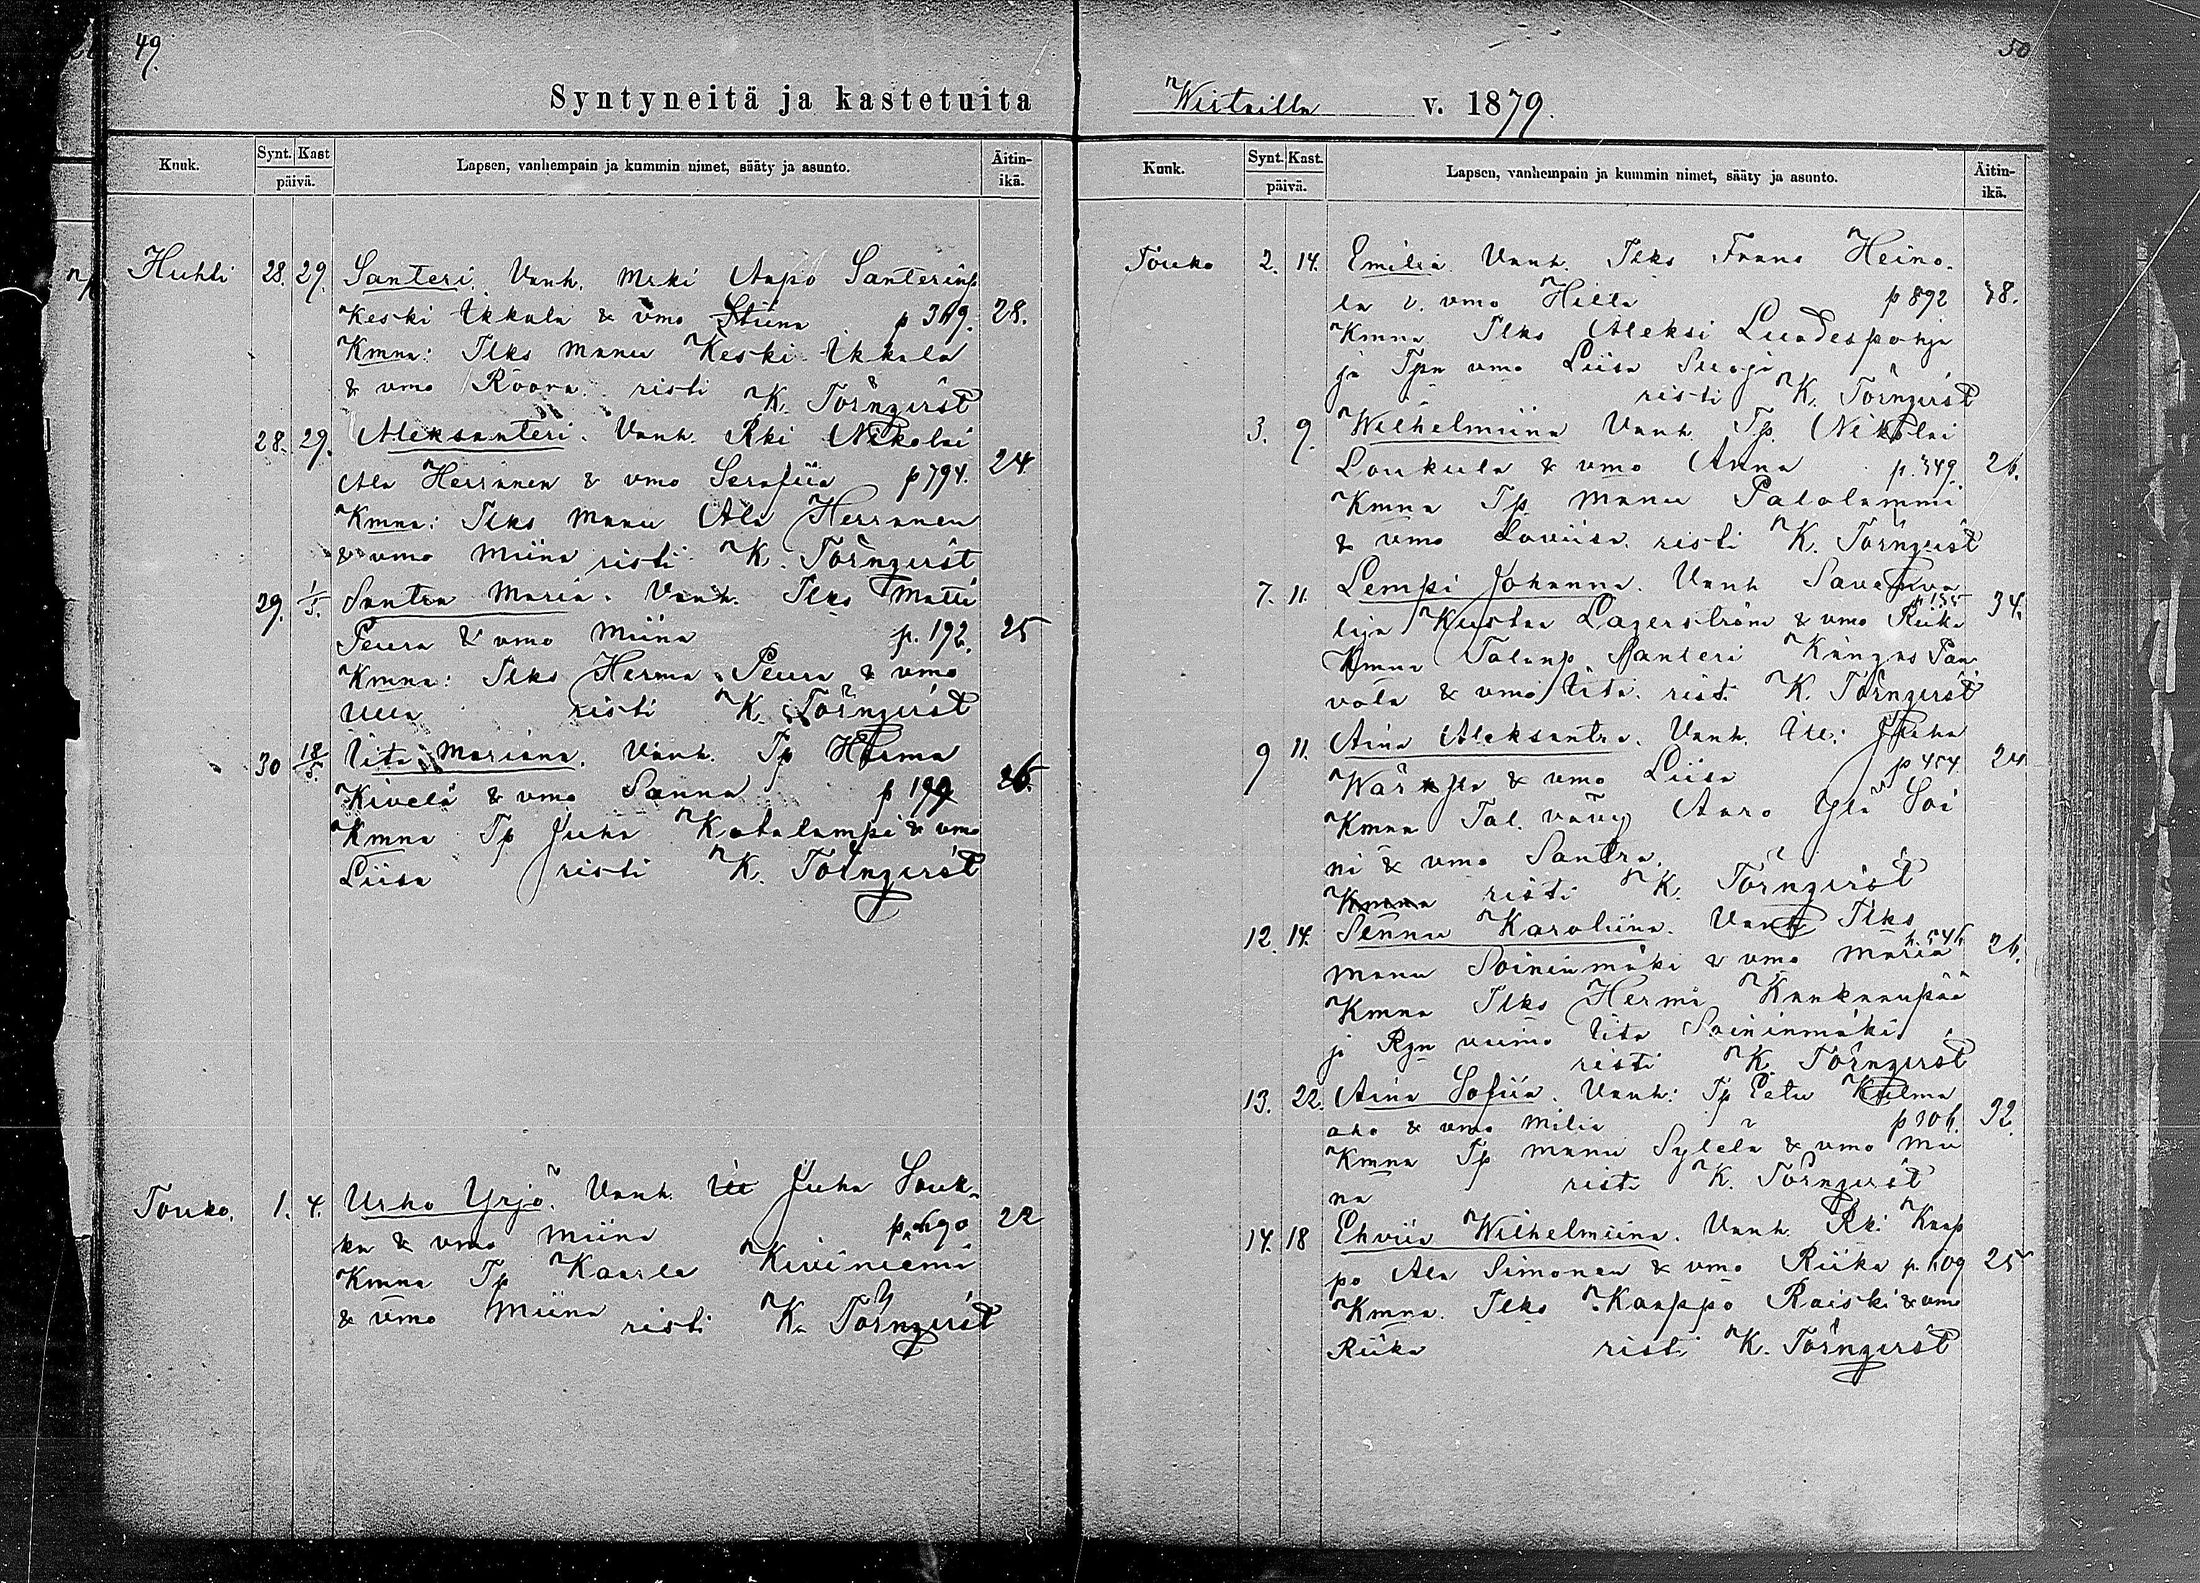 49.
Syntyneitä ja kastetuita
Kuuk.
Synt. Kast
päivä.
Lapsen, vanhempain ja kummin nimet, sääty ja asunto.
Äitin-
ikä.
Huhti 28. 29. Santeri. Vanh. Mrki Aapo Santerinp
Keski Ukkola & vmo Stiina p 369. 28.
Kmna: Ilks Manu Keski Ukkola
& vmo Roora. risti K. Törnqvist
28. 29. Aleksanteri. Vanh. Rki Nikolai
Ala Herranen & vmo Serafiia p 794. 24
Kmna: Ilks Manu Ala Herranen
& vmo Miina risti K. Törnqvist
29. 1/5. Santra Maria. Vanh. Ilks Matti
Peura & vmo Miina p. 192. 25
Kmna: Ilks Herma Peura & vmo
Ulla risti K. Törnqvist
30 18/5. Iita Mariana. Vanh. Tp Herma
Kivelä & vmo Sanna p 199 26.
Kmna Tp Juha Katalampi & vmo
Liisa risti K. Törnqvist
Touko. 1. 4. Urho Yrjö. Vanh. Juha Louk-
ka & vmo Miina p. 690 22
Kmna Tp Kaarle Kiviniemi
& vmo Miina risti K. Törnqvist
50
Wirtailla v. 1879.
Kuuk.
Synt. Kast.
päivä.
Lapsen, vanhempain ja kummin nimet, sääty ja asunto.
Äitin-
ikä.
Touko 2. 14. Emilia. Vanh. Ilks Frans Heino-
la v. vmo Hilla p 892 38.
Kmna Ilks Aleksi Luodespohja
ja Tpn vmo Liisa
risti K. Törnqvist
3. 9. Wilhelmiina Vanh. Tp. Nikolai
Loukula & vmo Anna p. 349. 26.
Kmna Tp Manu Patolammi
& vmo Loviisa. risti K. Törnqvist
7. 11. Lempi Johanna. Vanh Savenva
p 155
lija Kustaa Lagerström & vmo Riika 34.
Kmna Talanp. Santeri Kangas Paa
vola & vmo Iita. rist. K. Törnqvist
9 11. Aina Aleksantra. Vanh. Itel: Juha
& vmo Liisa p 454 24
Kmna Tal. vävy Aaro Ylä Soi
ni & vmo Santra.
Kmna risti K. Törnqvist
12. 14. Sennu Karoliina. Vanh Ilks
p. 546
Manu Soininmäki & vmo Maria 26.
Kmna Ilks Herma Kankaanpää
ja Rgn vaimo Iita Soininmäki
risti K. Törnqvist
13. 22. Aina Sofiia. Vanh: Tp Eetu Kulma
aho & vmo Milia p 306. 32.
Kmna Tp Manu Sylelä & vmo Mii
na risti K. Törnqvist
14. 18 Ehviia Wilhelmiina. Vanh. Rki Kaap
po Ala Simonen & vmo Riika p. 609 25
Kmna. Ilks Kaappo Raiski & vmo
Riika risti K. Törnqvist